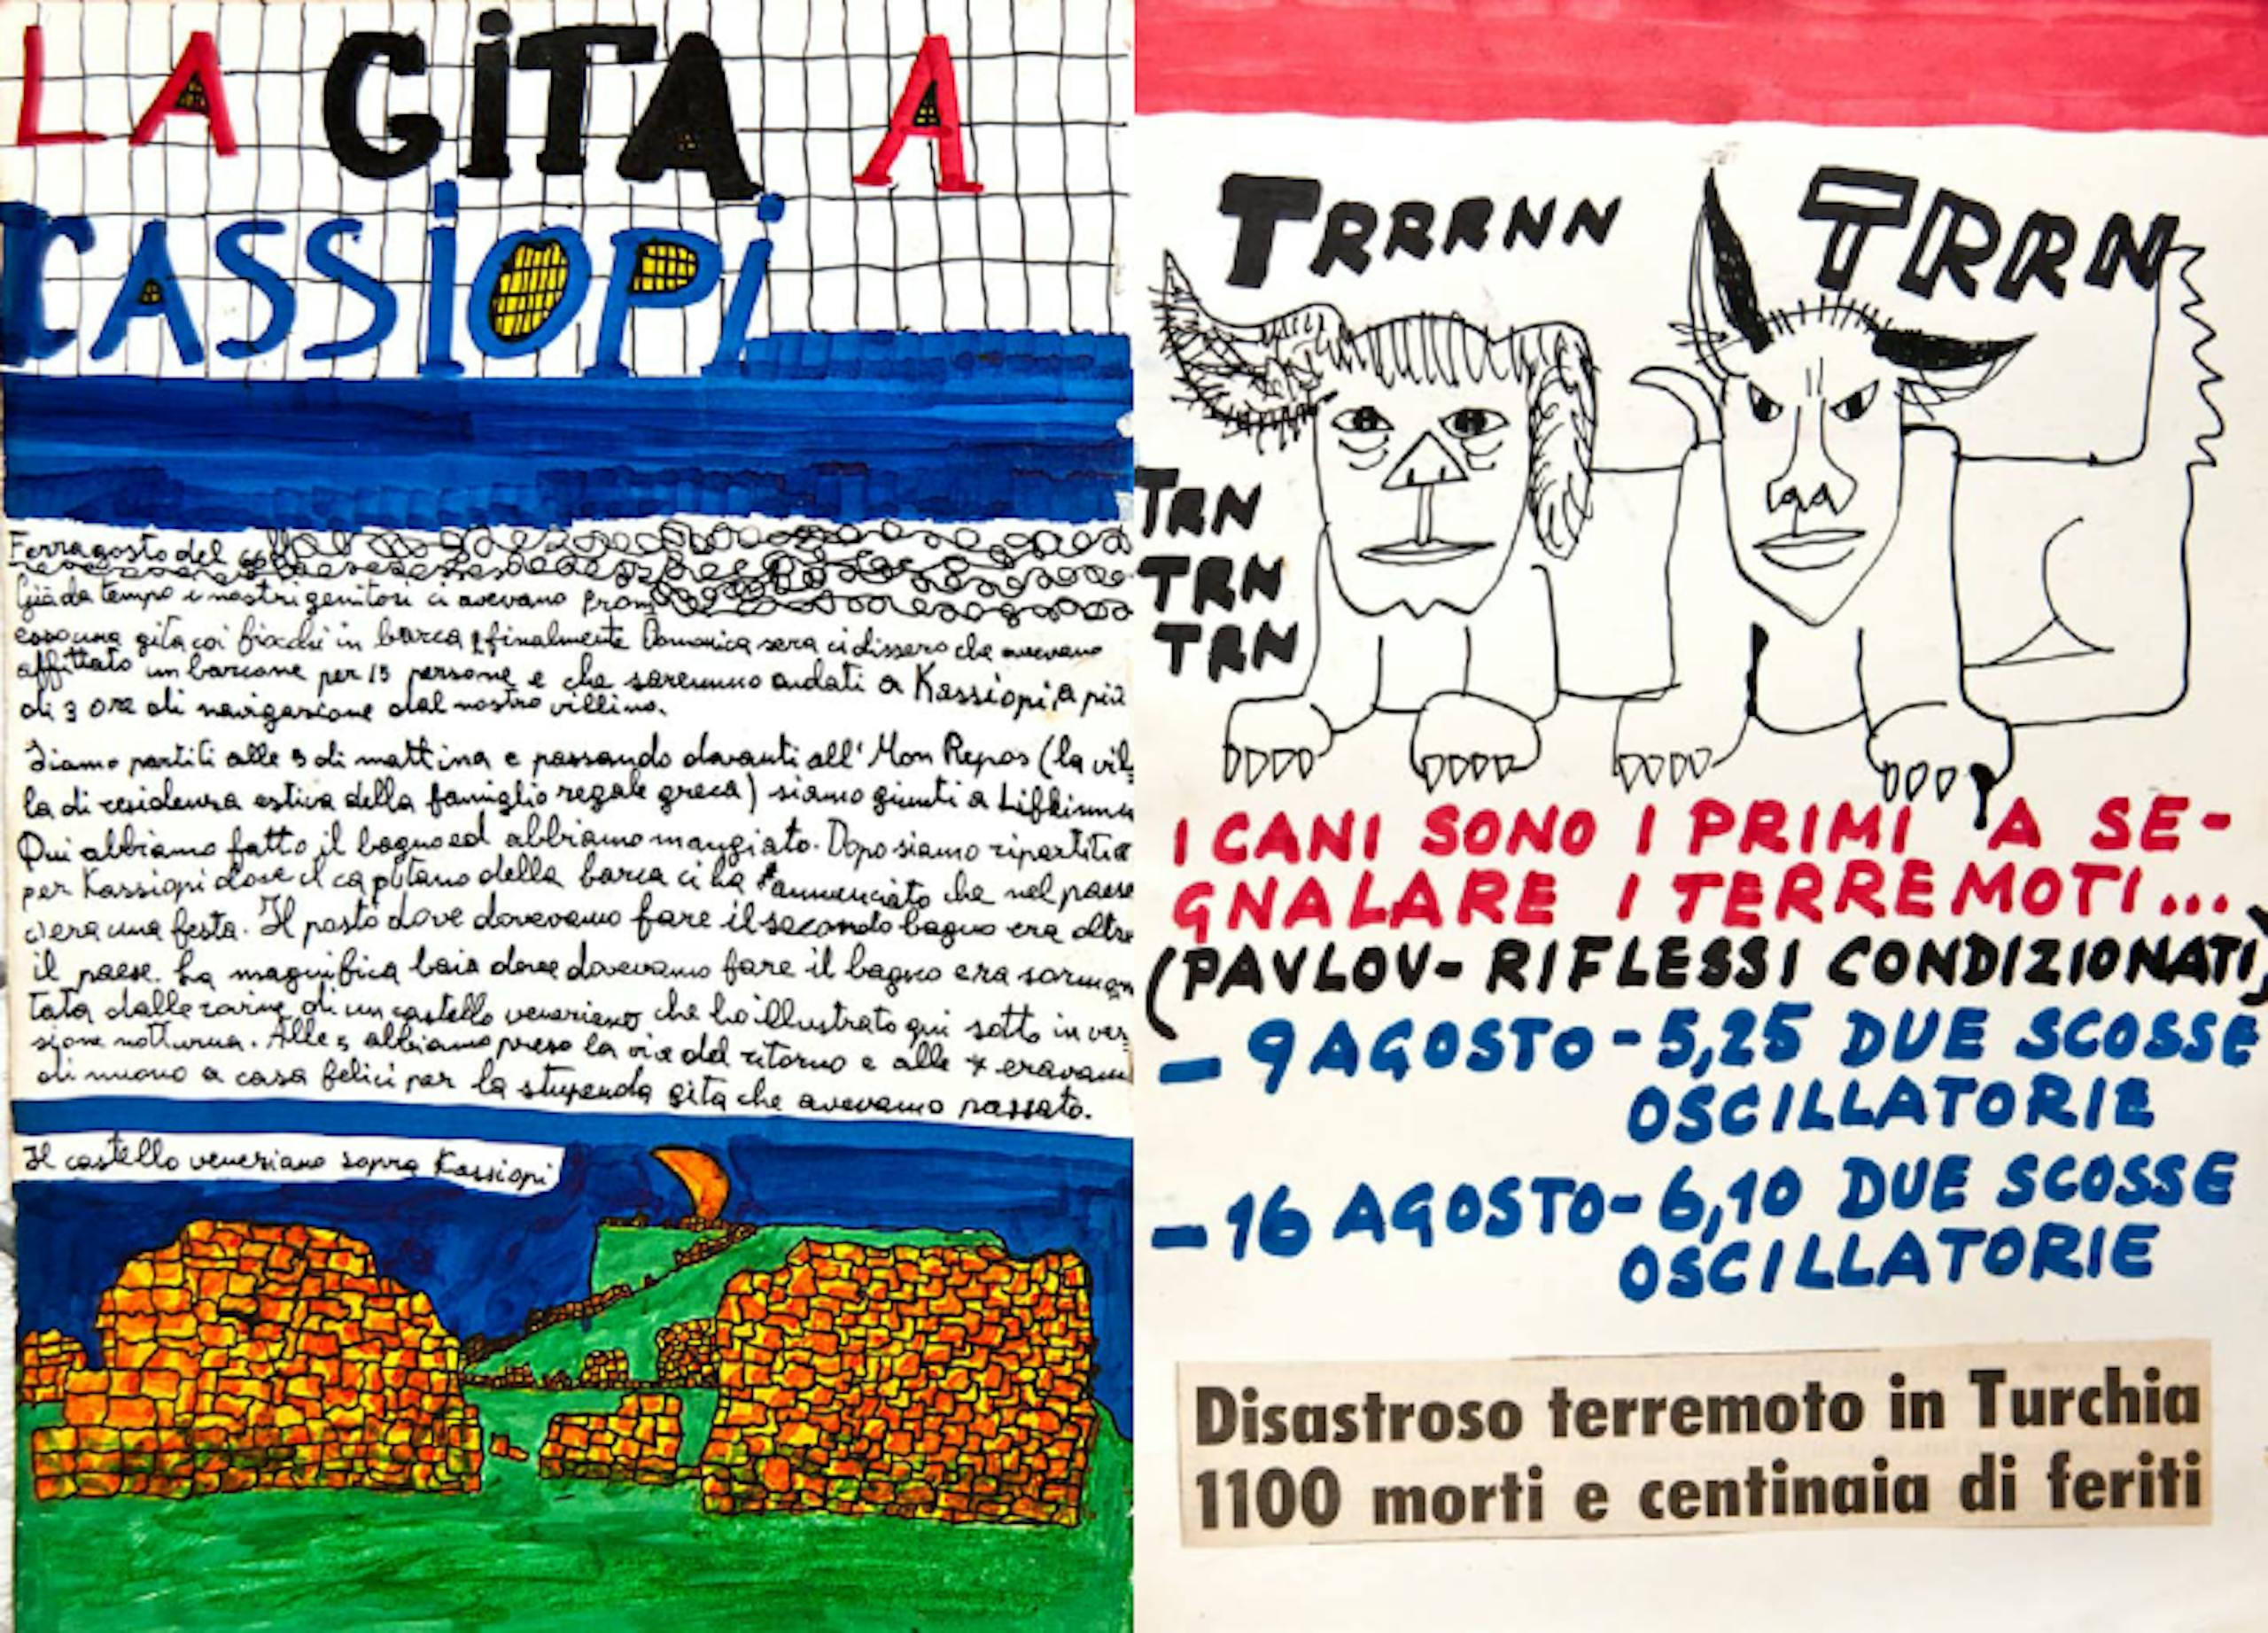 LA GITA A
CASSIOPI
Ferragosto del 66
Già da tempo i nostri genitori ci avevano prom
esso una gita coi fiocchi in barca e finalmente Domenica sera ci dissero che avevano
affittato un barcone per 15 persone e che saremmo andati a Kassiopi, a più
di 3 ore di navigazione dal nostro villino.
Siamo partiti alle 5 di mattina e passando davanti all' Mon Repos (la vil
la di residenza estiva della famiglia regale greca) siamo giunti a
Qui abbiamo fatto il bagno ed abbiamo mangiato. Dopo siamo ripartiti
per Kassiopi dove il capitano della barca ci ha annunciato che nel paese
c'era una festa. Il posto dove dovevamo fare il secondo bagno era oltre
il paese. La magnifica baia dove dovevamo fare il bagno era sormon
tata dalle rovine di un castello veneziano che ho illustrato qui sotto in ver
sione notturna. Alle 5 abbiamo preso la via del ritorno e alle 7 eravam
di nuovo a casa felici per la stupenda gita che avevamo passato.
Il castello veneziano sopra Kassiopi
TRRRRNN TRRN
TRN
TRN
TRN
I CANI SONO I PRIMI A SE-
GNALARE I TERREMOTI...
(PAVLOV- RIFLESSI CONDIZIONATI)
- 9 AGOSTO - 5,25 DUE SCOSSE
OSCILLATORIE
- 16 AGOSTO - 6,10 DUE SCOSSE
OSCILLATORIE
Disastroso terremoto in Turchia
1100 morti e centinaia di feriti